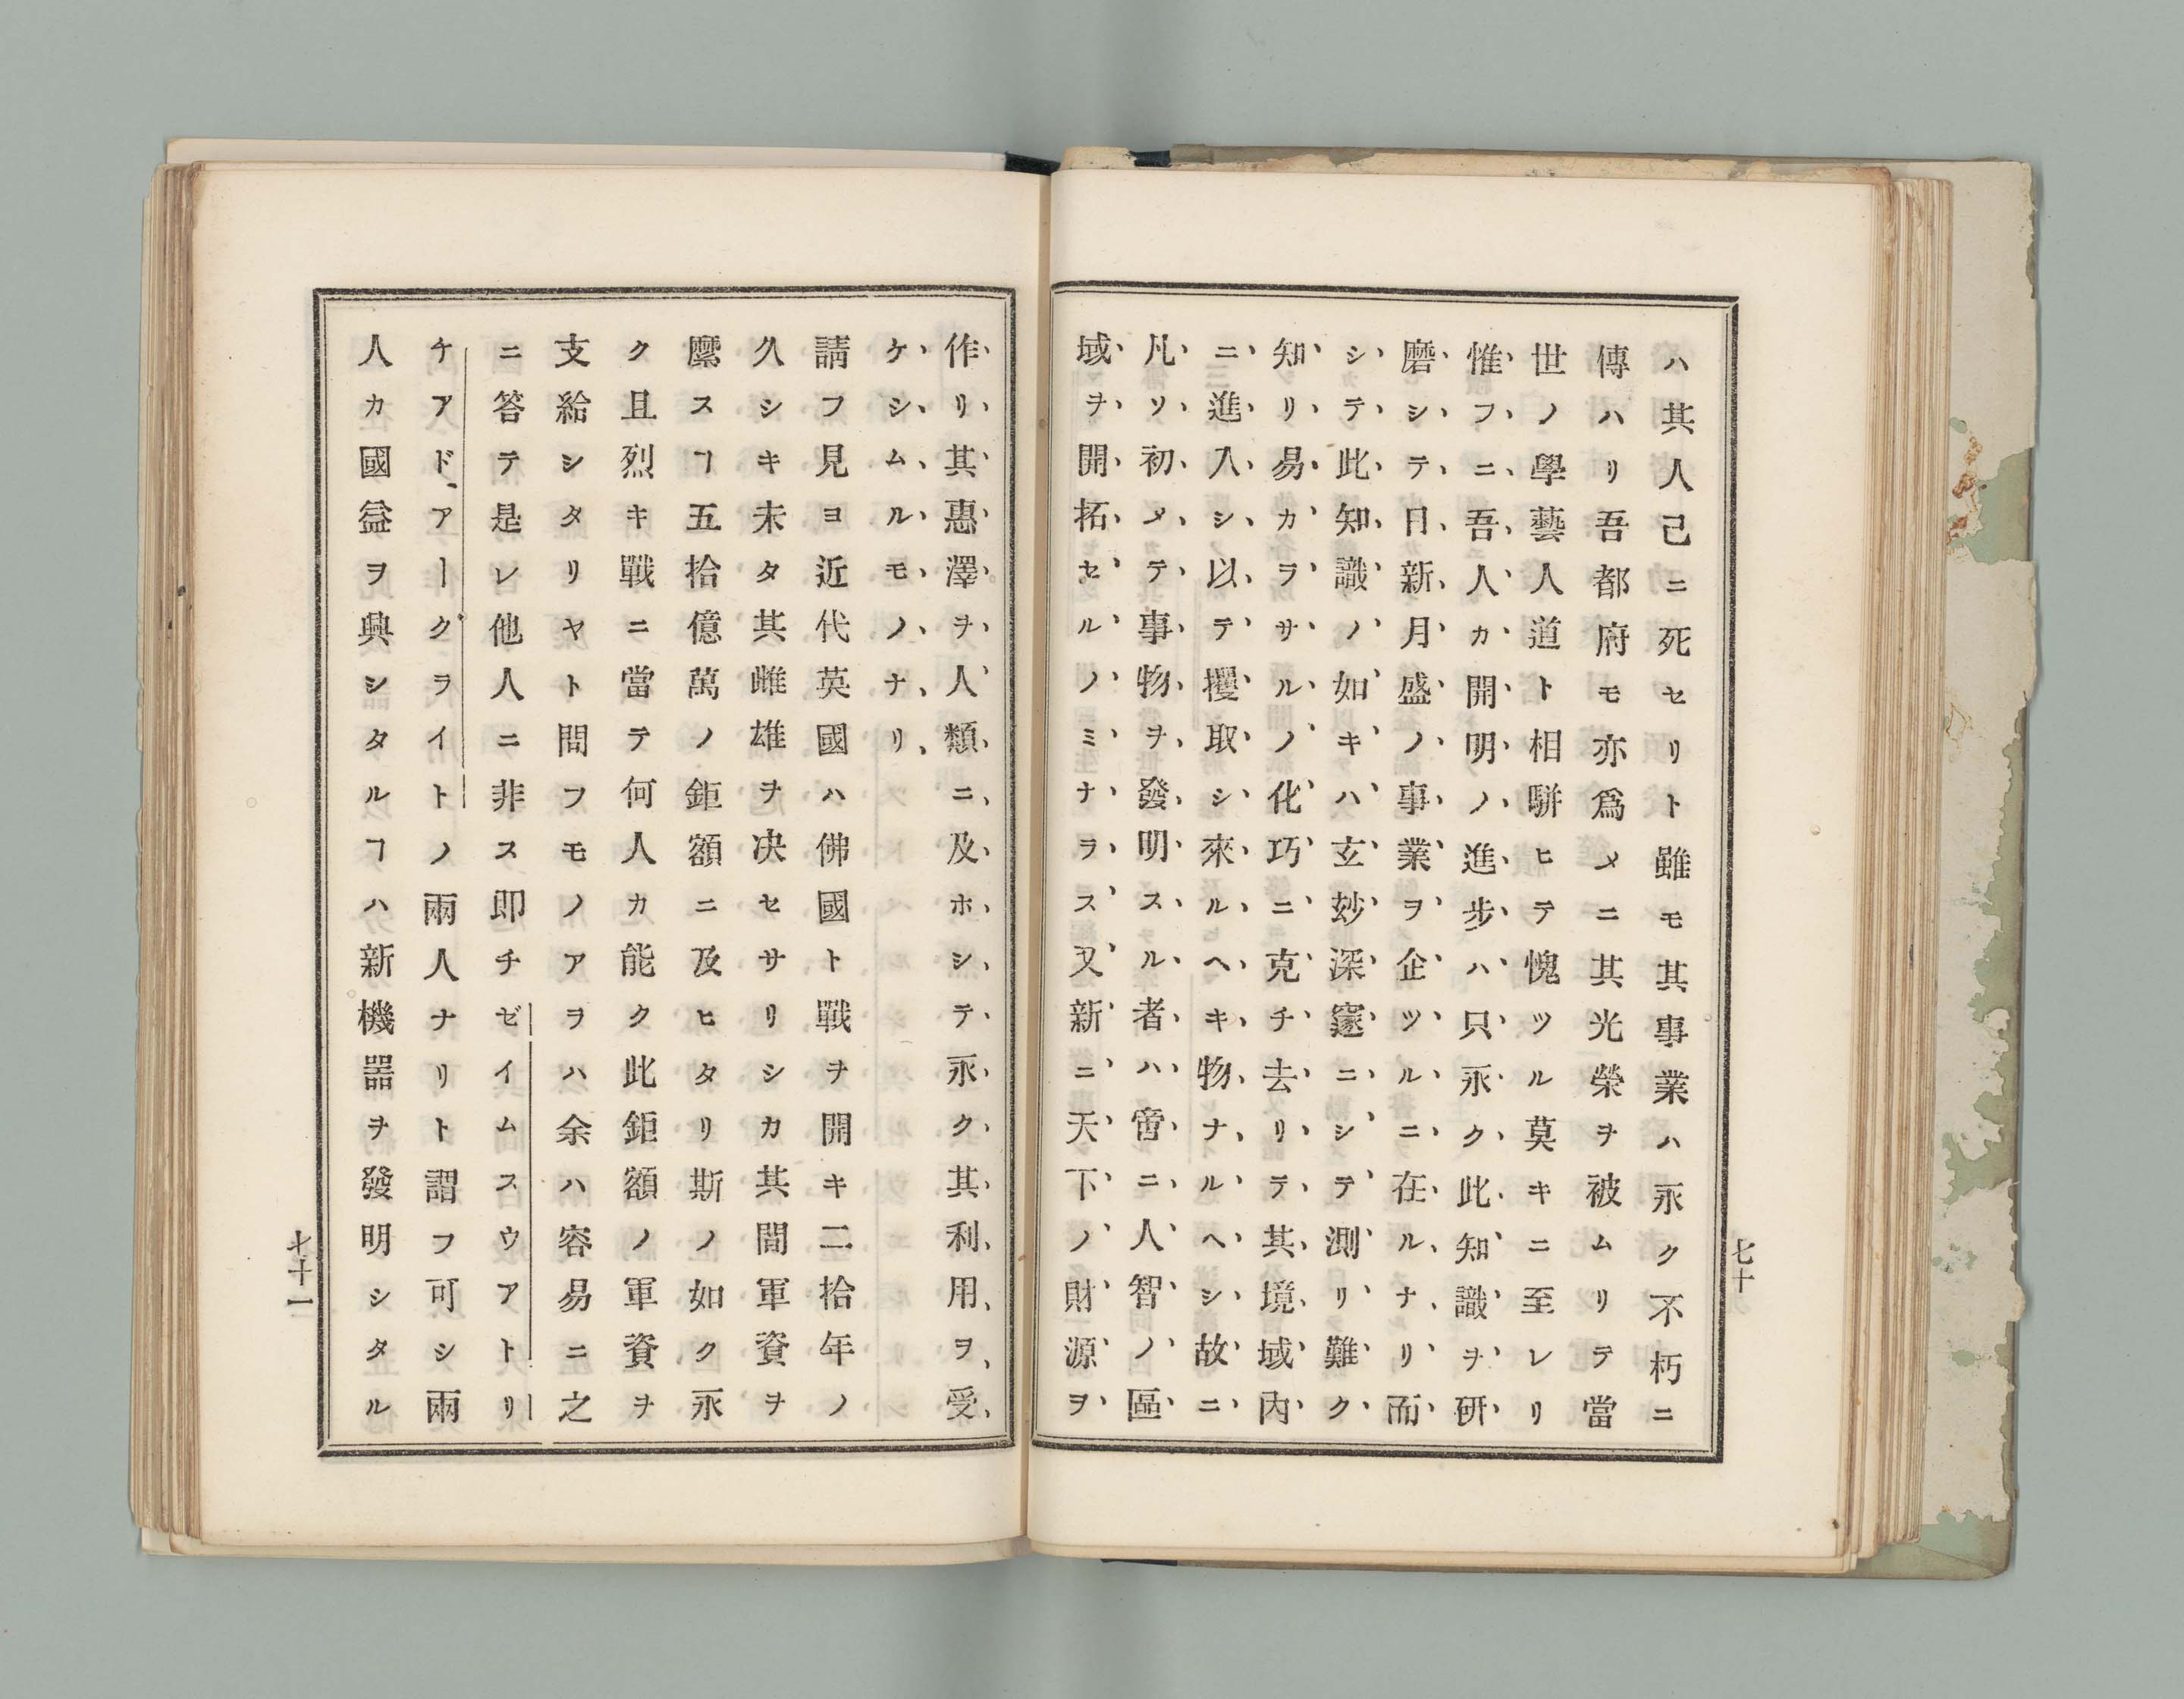 ハ其人己ニ死セリト雖モ其事業ハ永ク不朽ニ
傳ハリ吾都府モ亦爲メニ其光榮ヲ被ムリテ當
世ノ學藝人道ト相駢ヒテ愧ツル莫キニ至レリ
惟フニ吾人カ開明ノ進步ハ只永ク此知識ヲ研
磨シテ日新月盛ノ事業ヲ企ツルニ在ルナリ而
シテ此知識ノ如キハ玄玅深窽ニシテ測リ難ク
知リ易カラサルノ化巧ニ克チ去リテ其境域內
ニ進入シ以テ攫取シ來ルヘキ物ナルヘシ故ニ
凡ソ初メテ事物ヲ發明スル者ハ啻ニ人智ノ區
域ヲ開拓セルノミナラス又新ニ天下ノ財源ヲ
七十
作リ其惠澤ヲ人類ニ及ホシテ永ク其利用ヲ受
ケシムルモノナリ
請フ見ヨ近代英國ハ佛國ト戰ヲ開キ二拾年ノ
久シキ未タ其雌雄ヲ决セサリシカ其間軍資ヲ
縻スヿ五拾億萬ノ鉅額ニ及ヒタリ斯ノ如ク永
ク且烈キ戰ニ當テ何人カ能ク此鉅額ノ軍資ヲ
支給シタリヤト問フモノアヲハ余ハ容易ニ之
ニ答テ是レ他人ニ非ス即チゼイムスウアトリ
チアドアークライトノ兩人ナリト謂フ可シ兩
人カ國益ヲ興シタルヿハ新機器ヲ發明シタル
七十一